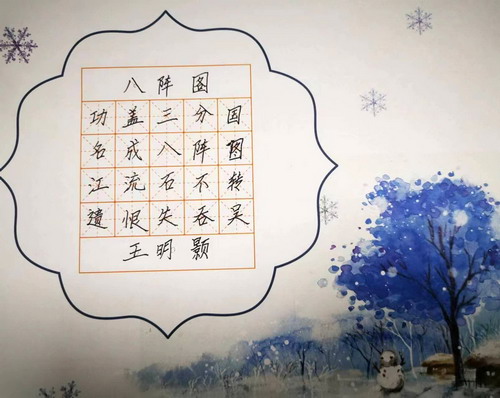 八阵图
功盖三分国
名成八阵图
江流石不转
遗恨失吞吴
王明颢